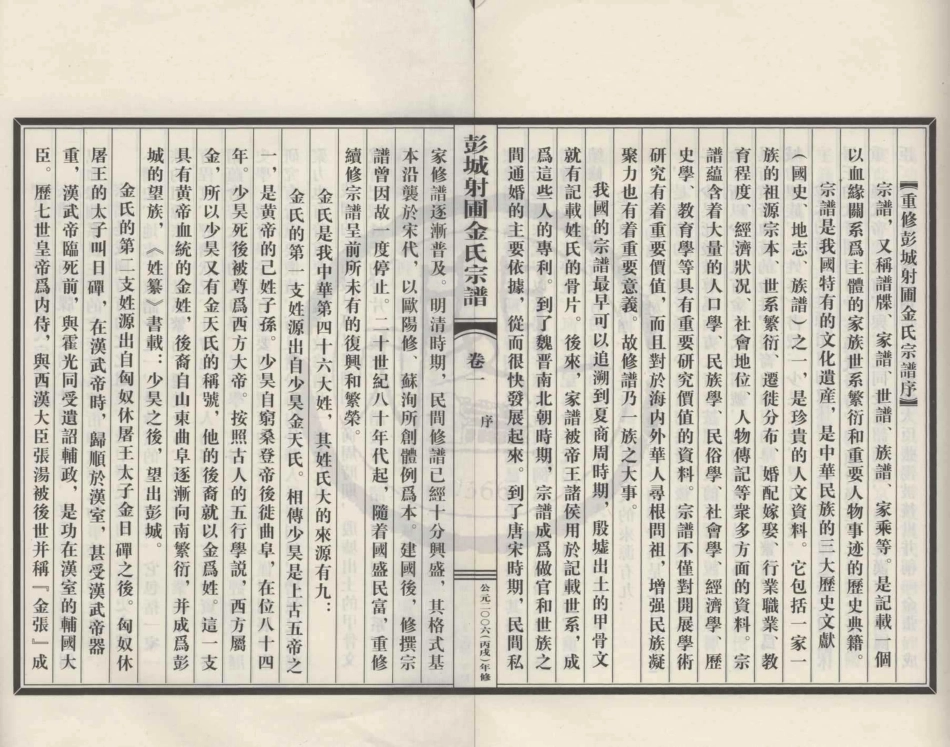 【重修彭城射圃金氏宗譜序】
宗譜，又稱譜牒、家譜、世譜、族譜、家乘等。是記載一個
以血緣關系爲主體的家族世系繁衍和重要人物事迹的歷史典籍。
宗譜是我國特有的文化遺産，是中華民族的三大歷史文獻
（國史、地志、族譜）之一，是珍貴的人文資料。它包括一家一
族的祖源宗本、世系繁衍、遷徙分布、婚配嫁娶、行業職業、教
育程度、經濟狀况、社會地位、人物傳記等衆多方面的資料。宗
譜蘊含着大量的人口學、民族學、民俗學、社會學、經濟學、歷
史學、教育學等具有重要研究價值的資料。宗譜不僅對開展學術
研究有着重要價值，而且對於海内外華人尋根問祖，增强民族凝
聚力也有着重要意義。故修譜乃一族之大事。
我國的宗譜最早可以追溯到夏商周時期，殷墟出土的甲骨文
就有記載姓氏的骨片。後來，家譜被帝王諸侯用於記載世系，成
爲這些人的專利。到了魏晋南北朝時期，宗譜成爲做官和世族之
間通婚的主要依據，從而很快發展起來。到了唐宋時期，民間私
彭城射圃金氏宗譜
卷一
序
公元二〇〇六（丙戌）年修
家修譜逐漸普及。明清時期，民間修譜已經十分興盛，其格式基
本沿襲於宋代，以歐陽修、蘇洵所創體例爲本。建國後，修撰宗
譜曾因故一度停止。二十世紀八十年代起，隨着國盛民富，重修
續修宗譜呈前所未有的復興和繁榮。
金氏是我中華第四十六大姓，其姓氏大的來源有九：
金氏的第一支姓源出自少昊金天氏。相傳少昊是上古五帝之
一，是黄帝的己姓子孫。少昊自窮桑登帝後徙曲阜，在位八十四
年。少昊死後被尊爲西方大帝。按照古人的五行學説，西方屬
金，所以少昊又有金天氏的稱號，他的後裔就以金爲姓。這一支
具有黄帝血統的金姓，後裔自山東曲阜逐漸向南繁衍，并成爲彭
城的望族，《姓纂》書載：少昊之後，望出彭城。
金氏的第二支姓源出自匈奴休屠王太子金日磾之後。匈奴休
屠王的太子叫日磾，在漢武帝時，歸順於漢室，甚受漢武帝器
重，漢武帝臨死前，與霍光同受遺詔輔政，是功在漢室的輔國大
臣。歷七世皇帝爲内侍，與西漢大臣張湯被後世并稱『金張』成